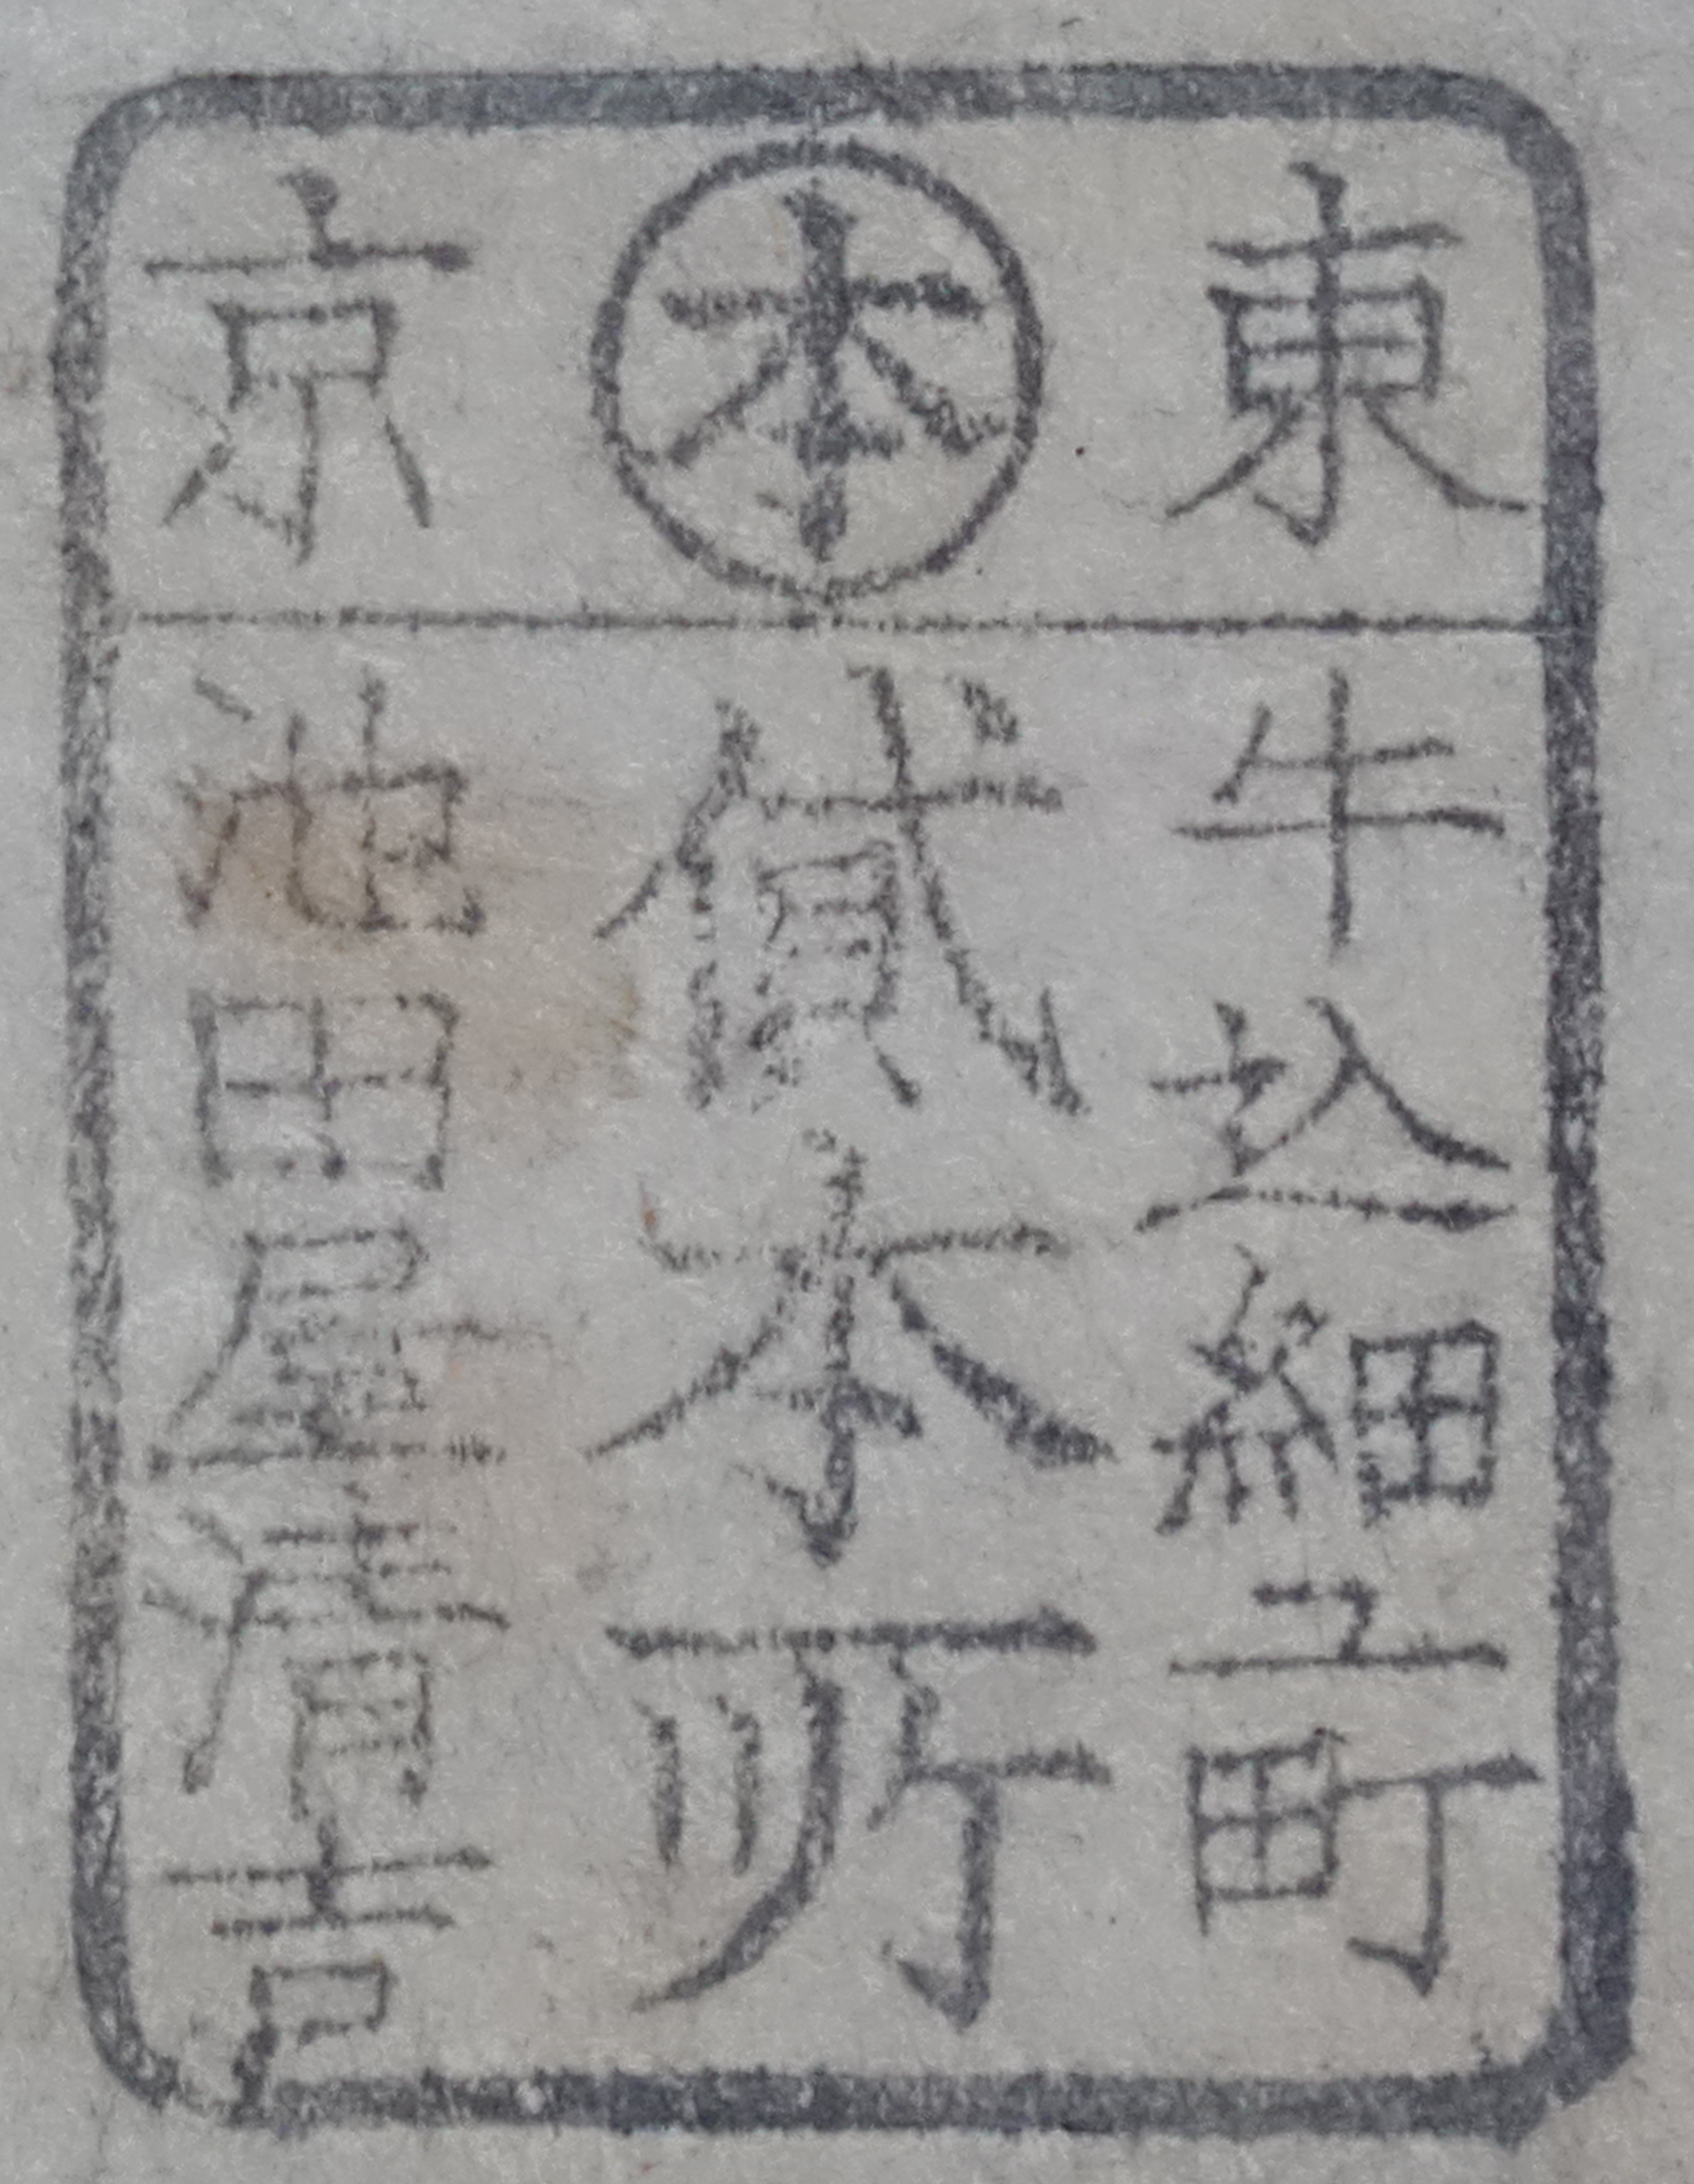 東本京
牛込細工町
貸本所
池田屋清吉